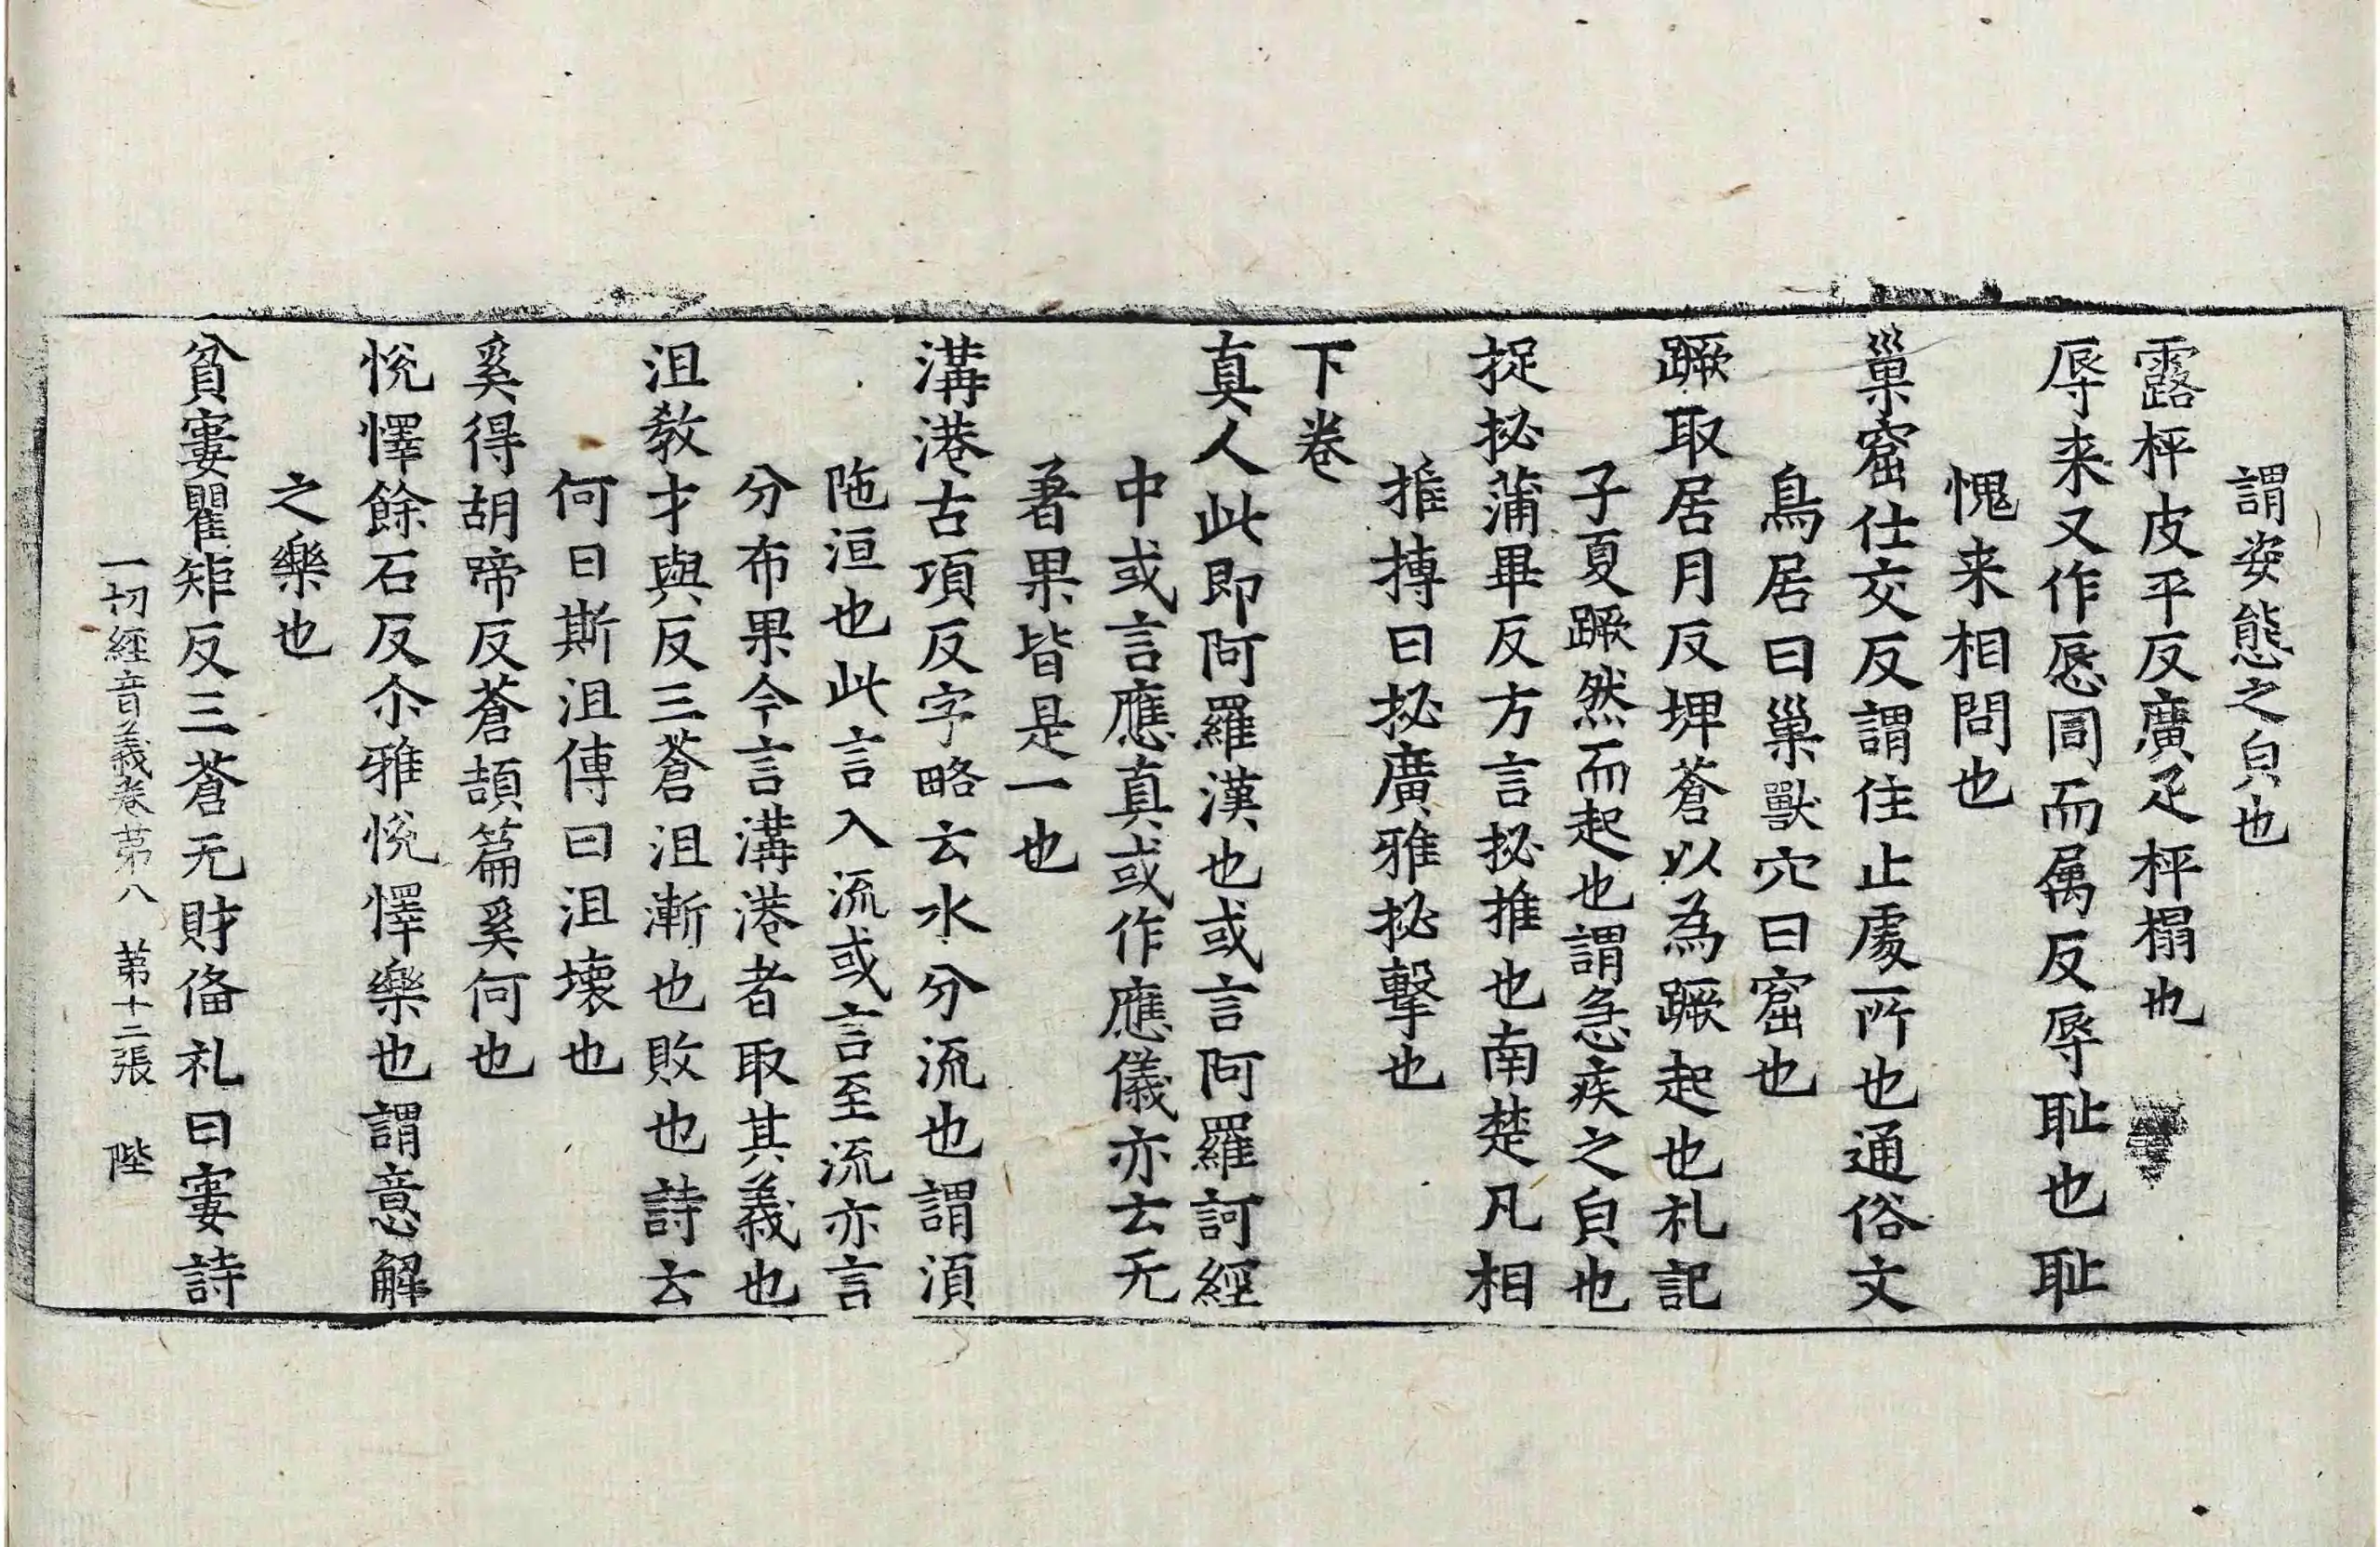 謂姿態之皃也
露枰皮平反廣疋枰榻也
辱来又作㥏同而属反辱耻也耻
愧来相問也
巢窟仕交反謂住止處所也通俗文
鳥居曰巢獸穴曰窟也
蹶取居月反埤蒼以為蹶起也札記
子夏蹶然而起也謂急疾之皃也
捉㧙蒲畢反方言㧙推也南楚凡相
推摶曰㧙廣雅㧙擊也
下卷
真人此即阿羅漢也或言阿羅訶經
中或言應真或作應儀亦云无
著果皆是一也
溝港古項反字略云水分流也謂湏
陁洹也此言入流或言至流亦言
分布果今言溝港者取其義也
沮敎才與反三蒼沮漸也敗也詩云
何日斯沮傳曰沮壞也
奚得胡啼反蒼頡篇奚何也
悅懌餘石反尒雅悅懌樂也謂意解
之樂也
貧寠瞿矩反三蒼无財俻礼曰寠詩
一切經音義卷苐八　苐十二張　陛